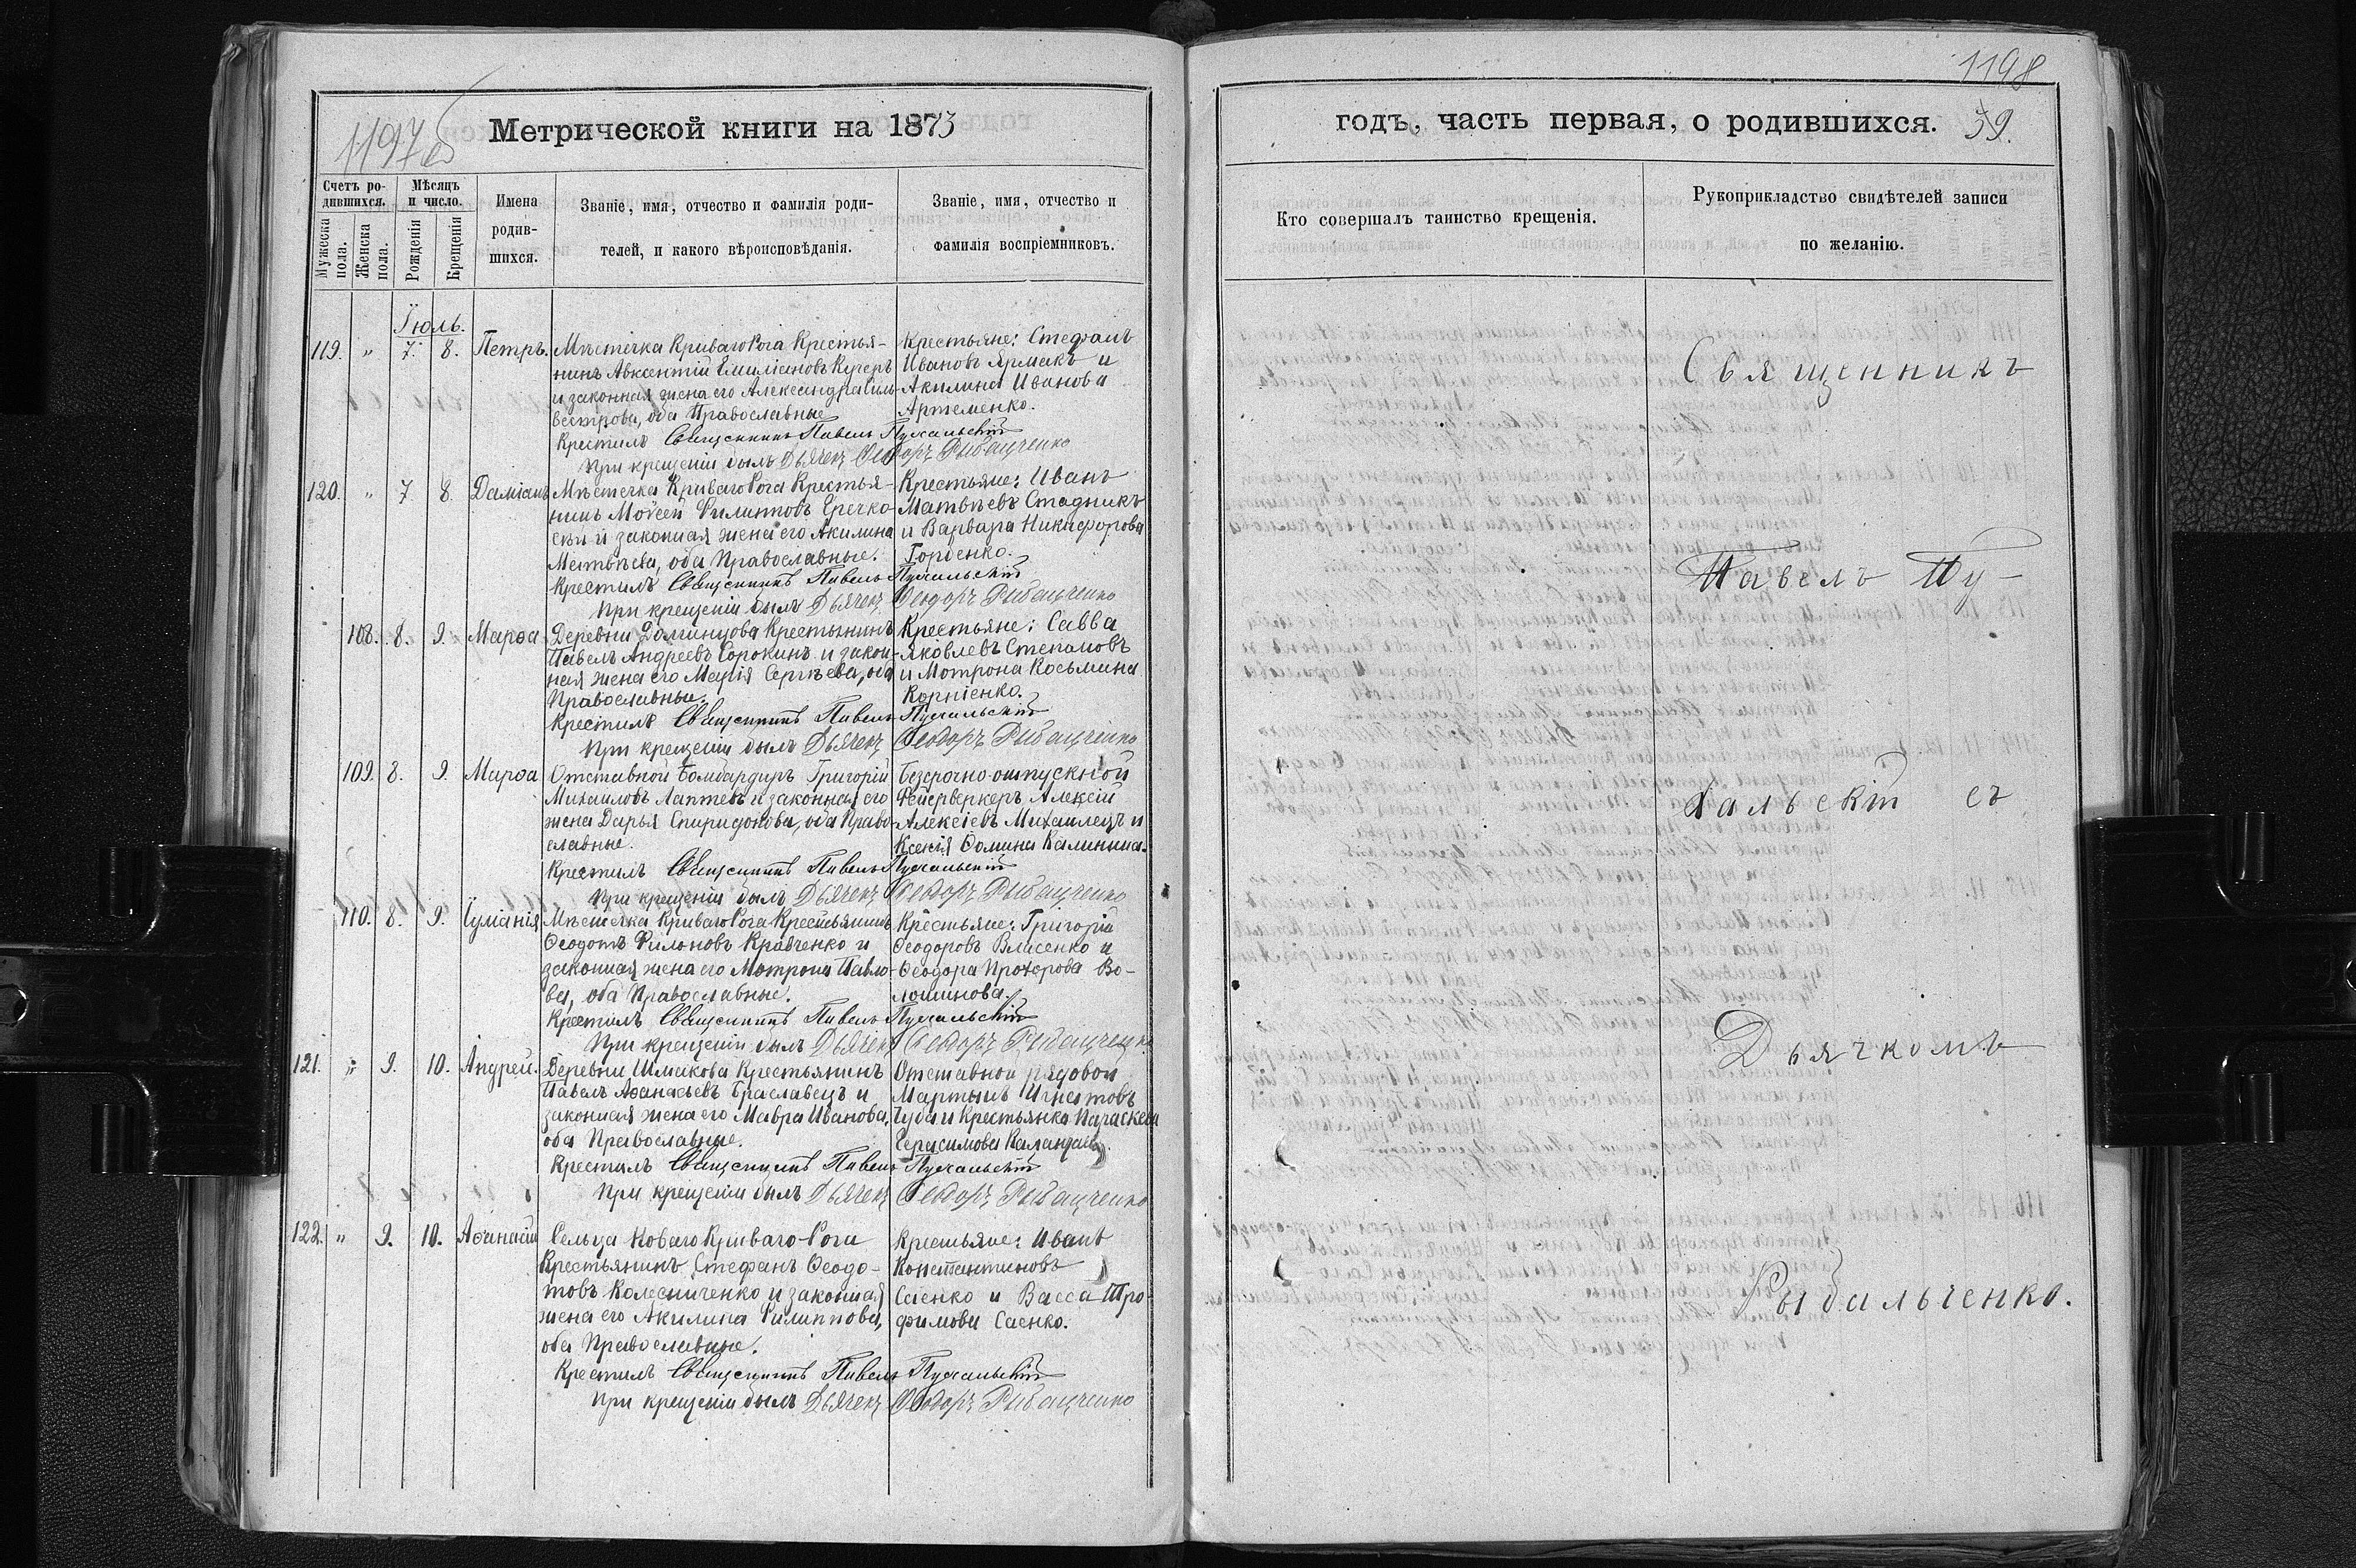 1197 об
Метрической книги на 1873
Счетъ ро-
дившихся.
Мужеска
пола.
Женска
пола.
Мѣсяцъ
и число.
Рожденія
Крещенія
Имена
родив-
шихся.
Званіе, имя, отчество и фамилія роди-
телей, и какого вѣроисповѣданія.
Званіе, имя, отчество и
фамилія воспріемниковъ.
Іюль.
119. " 7. 8. Петръ.
Мѣстечка Криваго Рога Крестья-
нинъ Авксентій Емиліановъ
и законная жена его Александра Силь-
вестрова, оба Православные
Крестьяне: Стефанъ
Ивановъ Ярмакъ и
Акилина Иванова
Артеменко.
Крестилъ Священникъ Павелъ Пухальскій
При крещеніи былъ Дьячекъ Ѳеодоръ Рибальченко
120. " 7 8. Даміанъ
Мѣстечка Криваго Рога Крестья-
нинъ Моѵсей Филиповъ Гречко-
сѣй и законная жена его Акилина
Матвѣева, оба Православные.
Крестьяне: Иванъ
Матвѣевъ Стадникъ
и Варвара Никифорова
Горбенко.
Крестилъ Священникъ Павелъ Пухальскій
При крещеніи былъ Дьячекъ Ѳеодоръ Рибальченко
108. 8. 9. Марѳа
Деревни Доминцова Крестьянинъ
Павелъ Андреевъ Сорокинъ и закон-
ная жена его Марія Сергѣева, оба
Православные.
Крестьяне: Савва
Яковлевъ Степановъ
и Мотрона Косьмина
Корніенко.
Крестилъ Священникъ Павелъ Пухальскій
При крещеніи былъ Дьячекъ Ѳеодоръ Рибальченко
109. 8. 9. Марѳа
Отставной Бомбардиръ Григорій
Михаиловъ Лаптевъ и законная его
жена Дарья Спиридонова, оба Право-
славные.
Безсрочно-отпускной
Фейерверкеръ Алексій
Алексіевъ Михаилецъ и
Ксенія Ѳомина Калинина.
Крестилъ Священникъ Павелъ Пухальскій
При крещеніи былъ Дьячекъ Ѳеодоръ Рибальченко
110. 8. 9. Іуліанія
Мѣстечка Криваго Рога Крестьянинъ
Ѳеодотъ Филоновъ Кравченко и
законная жена его Мотрона Павло-
ва, оба Православные.
Крестьяне: Григорій
Ѳеодоровъ Власенко и
Ѳеодора Прохорова Во-
лошинова.
Крестилъ Священникъ Павелъ Пухальскій
При крещеніи былъ Дьячекъ Ѳеодоръ Рибальченко
121. " 9. 10. Андрей.
Деревни Шмакова Крестьянинъ
Павелъ Аѳанасьевъ Браславецъ и
законная жена его Мавра Иванова,
оба Православные.
Отставной рядовой
Мартынъ Игнатовъ
Чуба и Крестьянка Параскева
Герасимова
Крестилъ Священникъ Павелъ Пухальскій
При крещеніи былъ Дьячекъ Ѳеодоръ Рибальченко
122. " 9. 10. Аѳанасій
Сельца Новаго Криваго-Рога
Крестьянинъ Стефанъ Ѳеодо-
товъ Колесниченко и законная
жена его Акилина Филиппова,
оба Православные.
Крестьяне: Иванъ
Константиновъ
Саенко и Васса Тро-
фимова Саенко.
Крестилъ Священникъ Павелъ Пухальскій
При крещеніи былъ Дьячекъ Ѳеодоръ Рибальченко
1198
годъ, часть первая, о родившихся. 59.
Кто совершалъ таинство крещенія.
Рукоприкладство свидѣтелей записи
по желанію.
Священникъ
Павелъ Пу-
хальскій съ
Дьячкомъ
Рыбальченко.